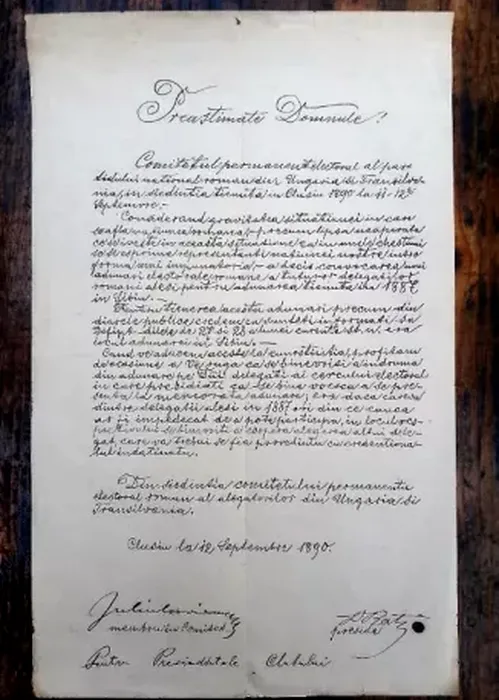 Preastimate Domnule!
Comitetul permanent electoral al par-
tidului national roman din Ungaria si Transilva-
nia, in siedintia tienuta in Clusiu 1890 la 11-12
Septemvre.-
Considerand gravitatea situatiunei in care
se afla natiunea romana, precum lipsa neaparata
ca se
forma mai - a decis convocarea unei
adunari electorale romane a tuturor delegatilor
romani alesi pentru adunarea tienuta in a. 1887
in Sibiiu.-
Pentru tienerea acestei adunari precum din
diarele publice credem ca sunteti informati s'a
defipt dilele de 27 si 28 a lunei curinte st. n. era
locul adunarei in Sibiiu.-
Cand ve aducem aceste la cunostintia, profitam
de ocasiune a Ve ruga ca se binevoiti a indruma
din adunare pe Dnii delegati ai cercului electoral
in care presidiati ca se bine voesca a se pre-
senta la memorata adunare; era daca careva
dintre delegatii alesi in 1887 ori din ce causa
ar fi impedecat de a pote participa, in locul res-
pectivului se binevoiti a conduce alegerea altui dele-
gat, care va trebui se fie provediutu cu credentiona-
lul indatinatu.
Din siedintia comitetului permanentu
electoral roman al alegatorilor din Ungaria si
Transilvania.
Clusiu la 12 Septembre 1890.
Iuliu
membru in Comitet
Dr Ratiu
preside
Pentru Presiedintele Clubului